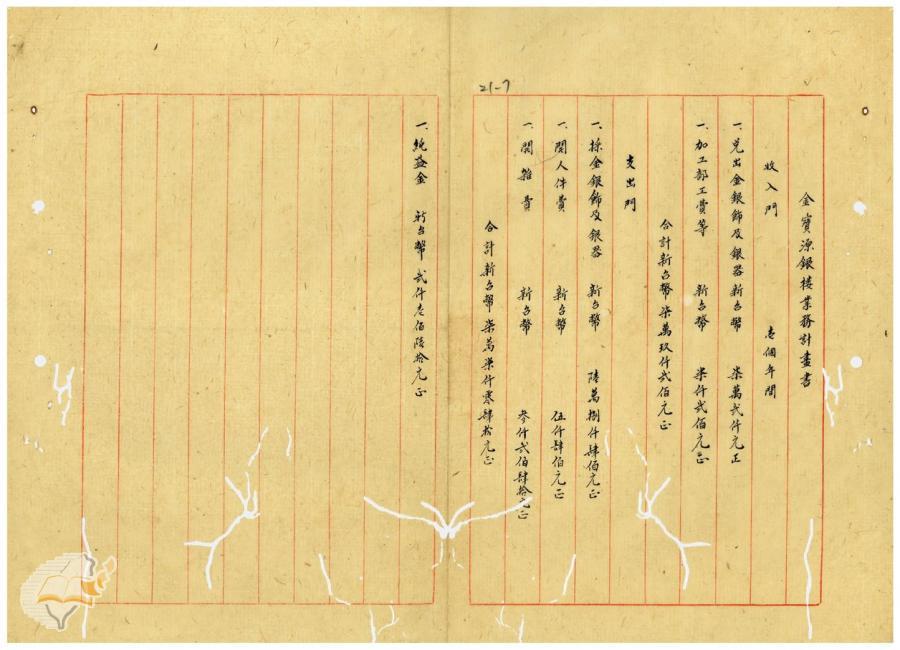 21-7
金寶源銀樓業務計畫書
收入門 壱個年間
一、兌出金銀飾及銀器 新台幣 柒萬弍仟元正
一、加工部工賃等 新台幣 柒仟弍佰元正
合計新台幣柒萬玖仟弍佰元正
支出門
一、採金銀飾及銀器 新台幣 陸萬捌仟肆佰元正
一、関人件費 新台幣 伍仟肆佰元正
一、関雜費 新台幣 叁仟弍佰肆拾元正
合計新台幣 柒萬柒仟零肆拾元正
一、純益金 新台幣 弍仟壱佰陸拾元正